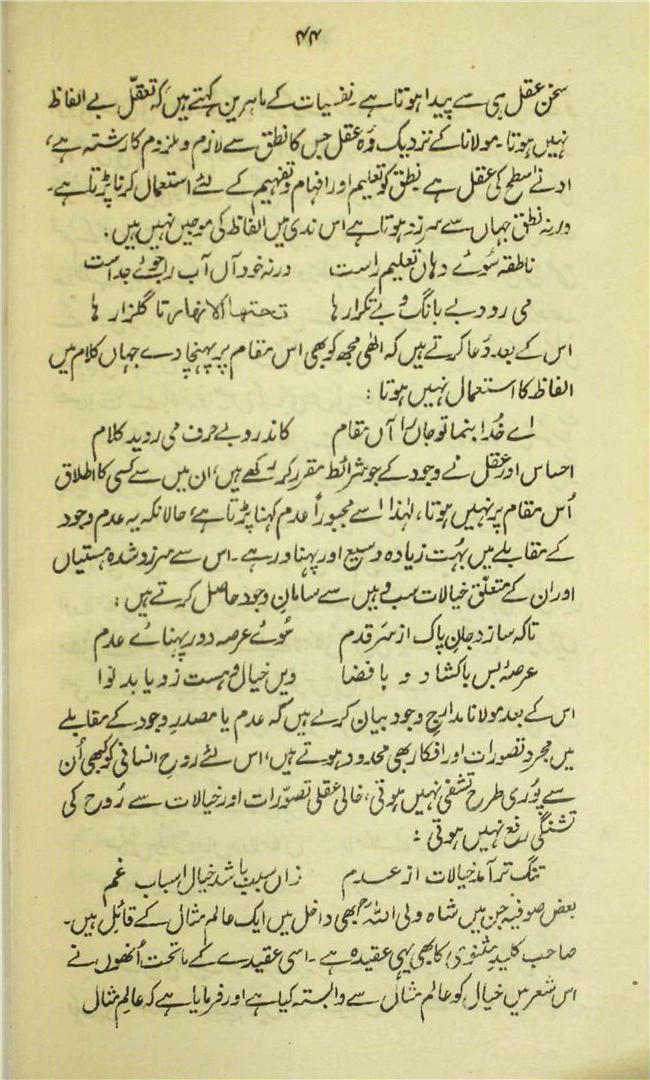 ۴۴
سخن عقل ہی سے پیدا ہوتا ہے۔ نفسیات کے ماہرین کہتے ہیں کہ تعقّل بے الفاظ
نہیں ہوتا۔ مولانا کے نزدیک وُہ عقل جس کا نطق سے لازم و ملزوم کا رشتہ ہے،
ادنے اسطح کی عقل ہے نطق کو تعلیم اور افہام و تفہیم کے لئے استعمال کرنا پڑتا ہے۔
ورنہ نطق جہاں سے سرزد ہوتا ہے اس ندی میں الفاظ کی موجیں نہیں ہیں :
ناطقہ سُوئے دہاں تعلیم راست ورنہ خود آں آب را جوئے جداست
می رود بے بانگ و بے تکرارہا تحتہا الانہار تا گلزارہا
اس کے بعد دُعا کرتے ہیں کہ الٰھی مجھ کو بھی اس مقام پر پہنچا دے جہاں کلام میں
الفاظ کا استعمال نہیں ہوتا :
اے خُدا بنما تو جاں را آں مقام کاندرو بے حرف می روید کلام
احساس اور عقل نے وجود کے جو شرائط مقرر کر رکھے ہیں، ان میں سے کسی کا اطلاق
اُس مقام پر نہیں ہوتا، لہٰذا اسے مجبوراً عدم کہنا پڑتا ہے، حالانکہ یہ عدم وجود
کے مقابلے میں بہُت زیادہ وسیع اور پہناور ہے۔ اس سے سرزد شدہ ہستیاں
اور ان کے متعلّق خیالات سب وہیں سے سامانِ وجود حاصل کرتے ہیں :
تاکہ سازد جانِ پاک از سر قدم سُوئے عرصہ دور پہنائے عدم
عرصۂ بس باکشاد و با فضا ویں خیال و ہست زو یابد نوا
اس کے بعد مولانا مدارجِ وجود بیان کرتے ہیں کہ عدم یا مصدرِ وجود کے مقابلے
میں مجرد تصورات اور افکار بھی محدود ہوتے ہیں، اس لئے روحِ انسانی کو کبھی اُن
سے پُوری طرح تشفی نہیں ہوتی، خالی عقلی تصوّرات اور خیالات سے رُوح کی
تشنگی رفع نہیں ہوتی :
تنگ تر آمد خیالات از عدم زاں سبب باشد خیال اسباب غم
بعض صوفیہ جن میں شاہ ولی اللہؒ بھی داخل ہیں ایک عالمِ مثال کے قائل ہیں۔
صاحب کلیدِ مثنوی کا بھی یہی عقیدہ ہے۔ اسی عقیدے کے ماتحت اُنھوں نے
اس شعر میں خیال کو عالمِ مثال سے وابستہ کیا ہے اور فرمایا ہے کہ عالمِ مثال